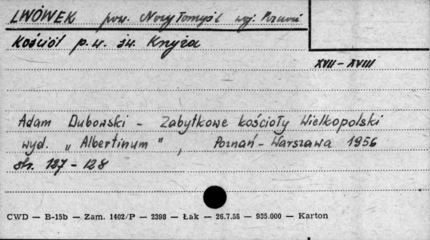 LWÓWEK pow. Nowy Tomyśl wyj. Poznań
Kościół p.w. św. Krzyża
XVII - XVIII
Adam Dubowski - Zabytkowe kościoły Wielkopolski
wyd. „Albertinum", Poznań - Warszawa 1956
str. 127 - 128
CWD — B-15b — Zam. 1402/P — 2398 — Łak — 26.7.56 — 935.000 — Karton